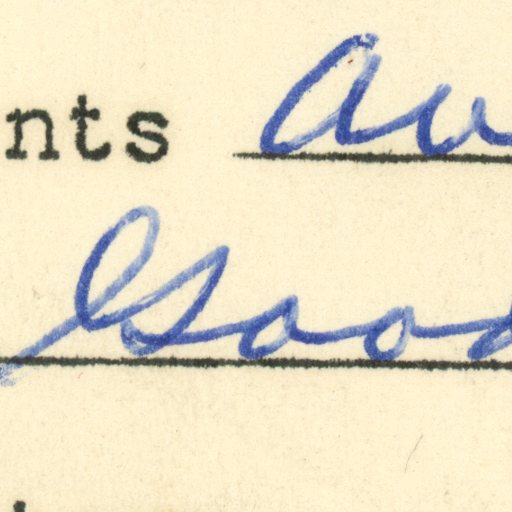 nts av
Good